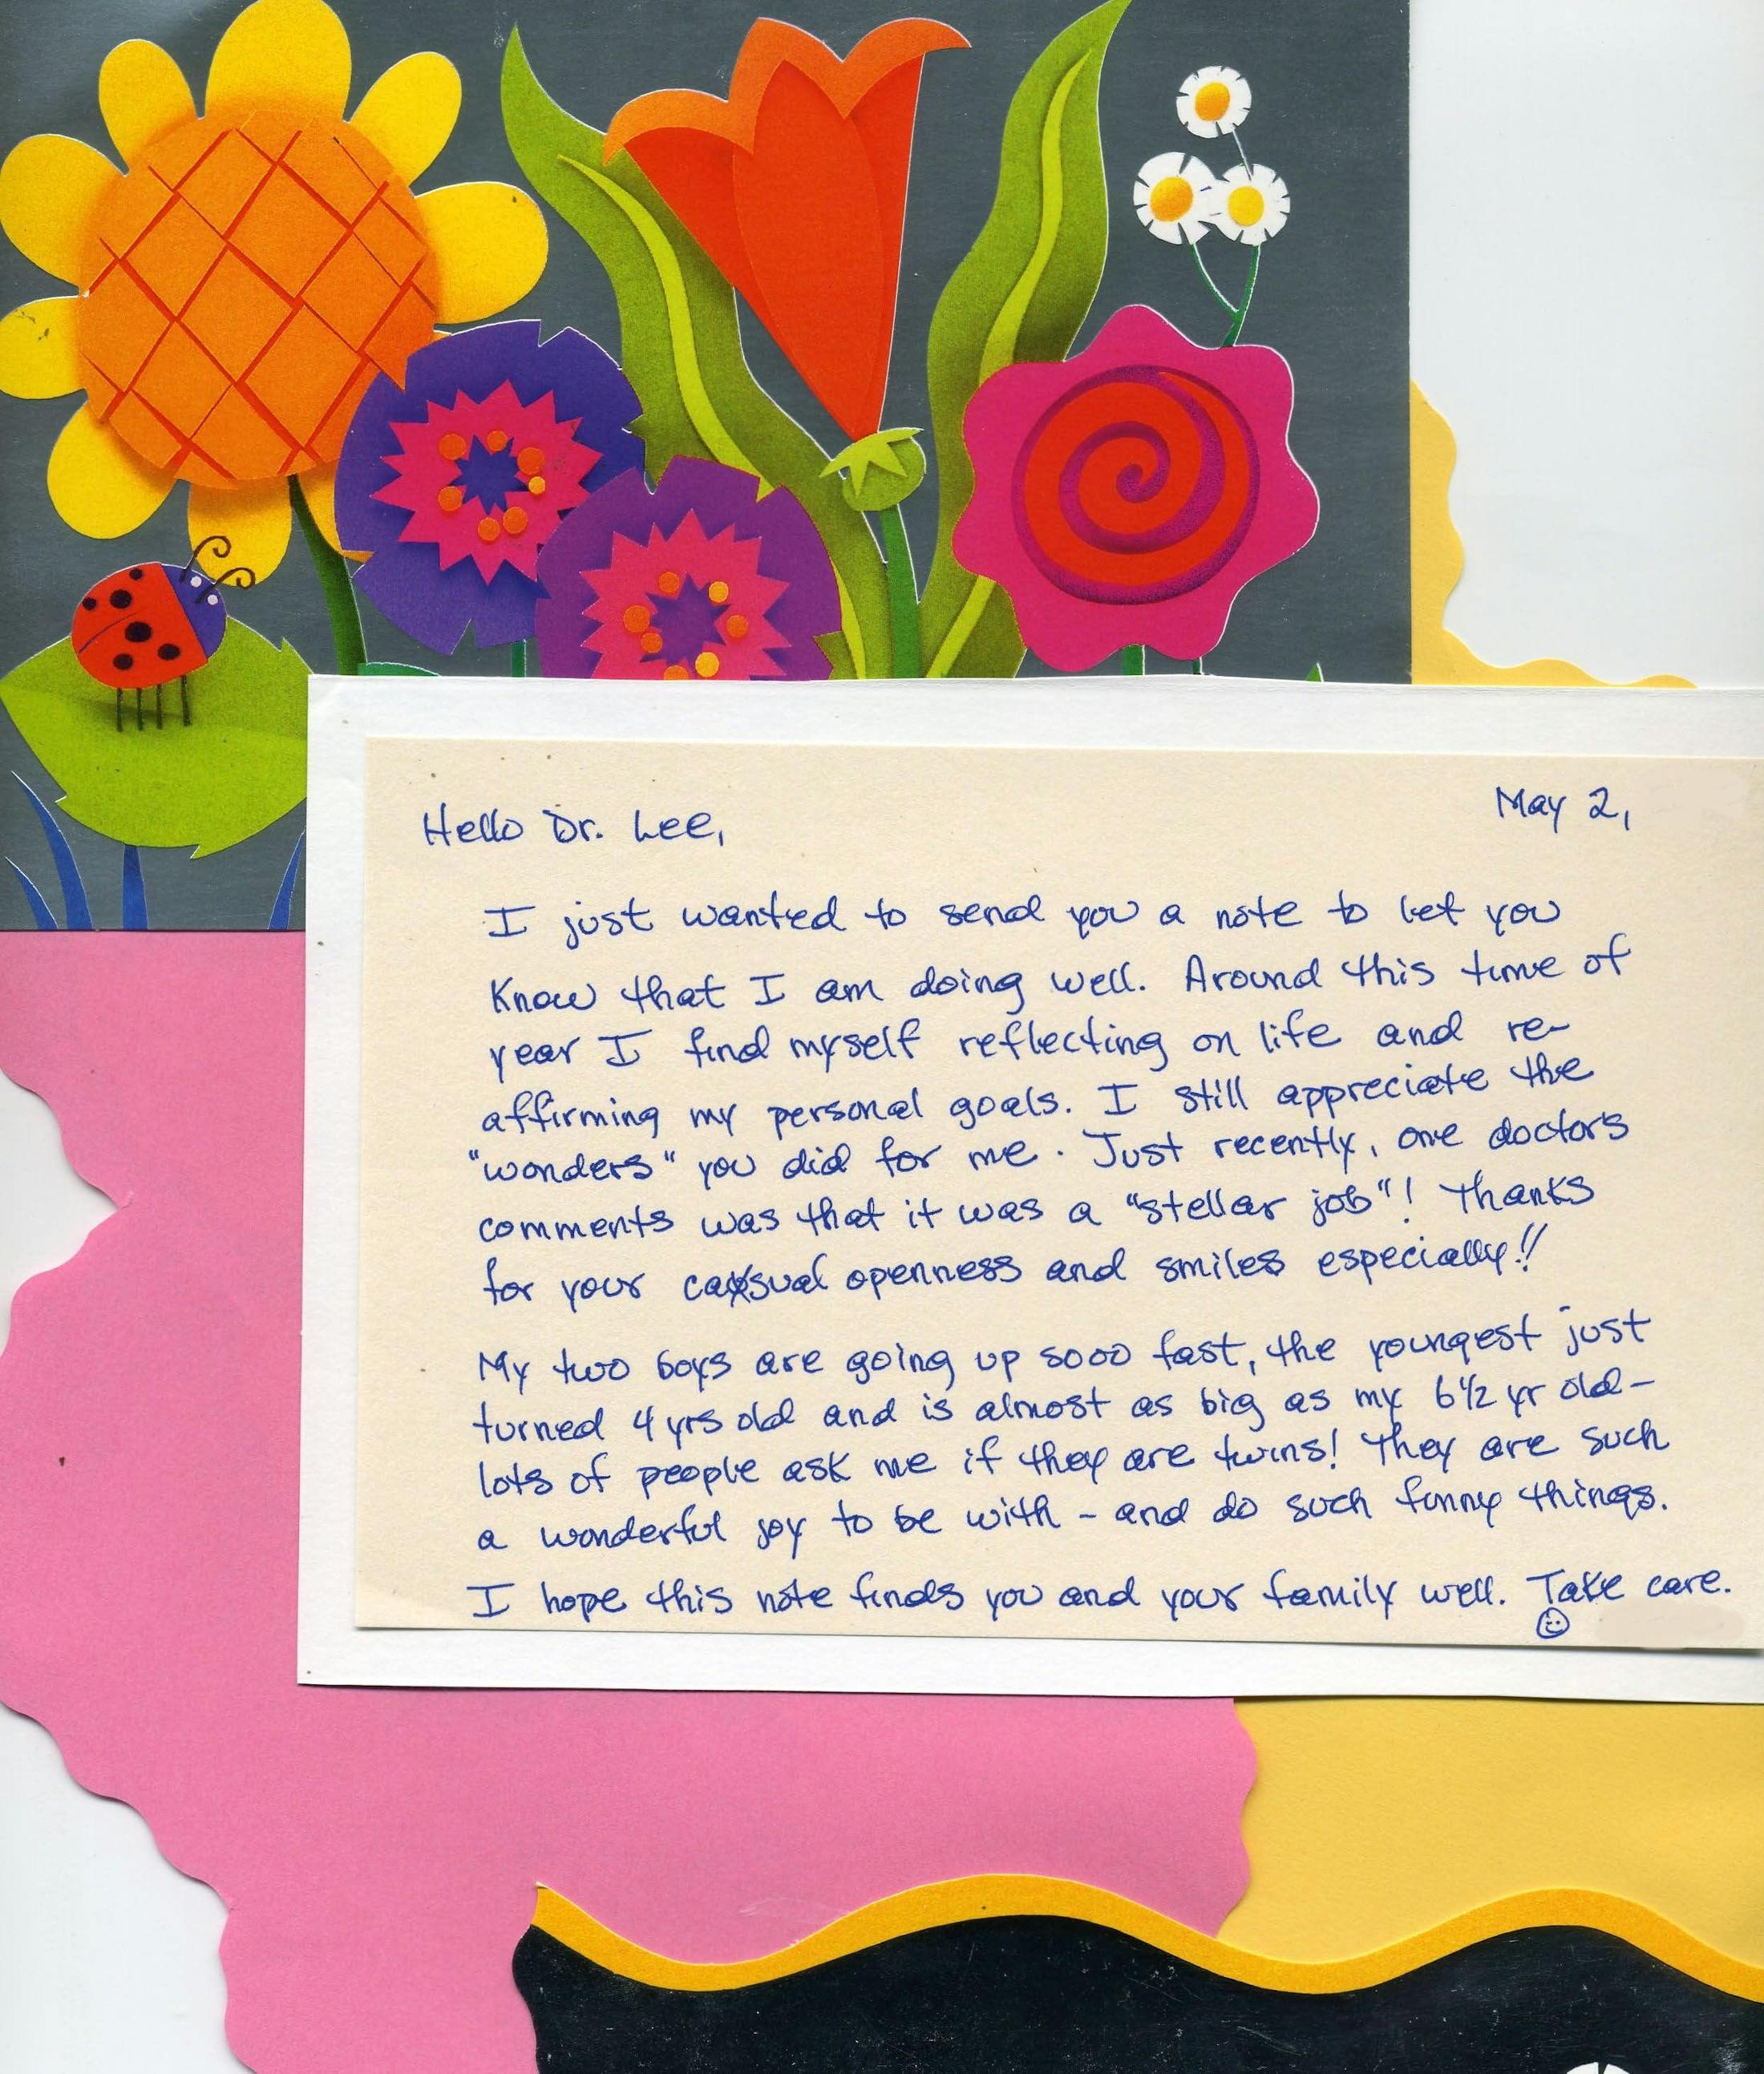 May 2,
Hello Dr. Lee,
I just wanted to send you a note to let you
know that I am doing well. Around this time of
year I find myself reflecting on life and re-
affirming my personal goals. I still appreciate the
"wonders" you did for me. Just recently, one doctors
comments was that it was a "stellar job"! Thanks
for your casual openness and smiles especially!!
My two boys are going up sooo fast, the youngest just
turned 4 yrs old and is almost as big as my 6 1/2 yr old-
lots of people ask me if they are twins! They are such
a wonderful joy to be with - and do such funny things.
I hope this note finds you and your family well. Take care.